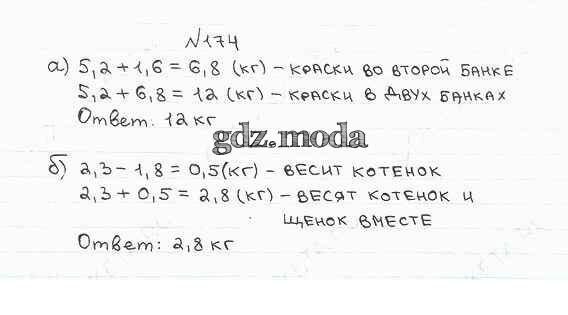 №174
а) 5,2 + 1,6 = 6,8 (кг) – КРАСКИ ВО ВТОРОЙ БАНКЕ
5,2 + 6,8 = 12 (кг) – КРАСКИ В ДВУХ БАНКАХ
Ответ: 12 кг
gdz.moda
б) 2,3 – 1,8 = 0,5 (кг) – ВЕСИТ КОТЕНОК
2,3 + 0,5 = 2,8 (кг) – ВЕСЯТ КОТЕНОК И
ЩЕНОК ВМЕСТЕ
Ответ: 2,8 кг